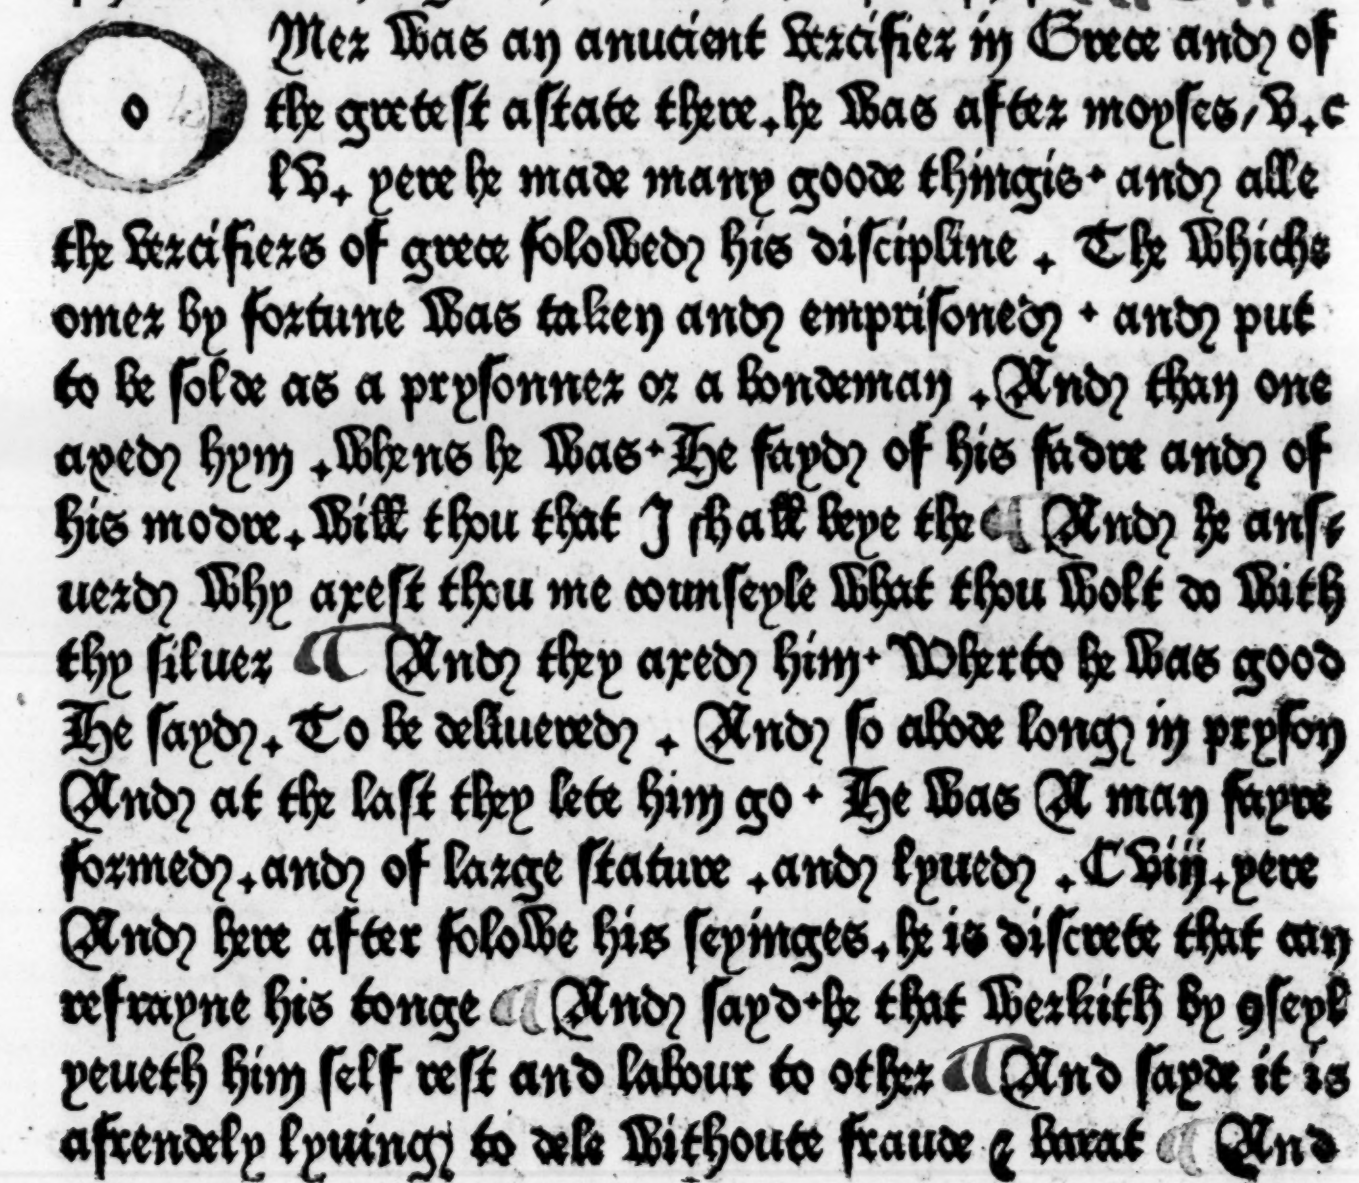 OMer was an anucient vercifier in Grece and of
the gretest astate there. he was after moyses/ v. c
lv. yere he made many goode thingis. and alle
the vercifiers of grece folowed his discipline. The whiche
omer by fortune was taken and emprisoned. and put
to be solde as a prysonner or a bondeman. And than one
axed hym. whens he was. He sayd of his fadre and of
his modre. will thou that I shall beye the ¶ And he ans⸗
uerd why axest thou me counseyle what thou wolt do with
thy siluer ¶ And they axed him. Wherto he was good
He sayd. To be deliuered. And so abode long in pryson
And at the last they lete him go. He was A man fayre
formed. and of large stature. and lyued. Cviij. yere
And here after folowe his seyinges. he is discrete that can
refrayne his tonge ¶ And sayd. he that werkith by ꝯseyl
yeueth him self rest and labour to other ¶ And sayde it is
afrendely lyuing to dele withoute fraude & barat ¶ And